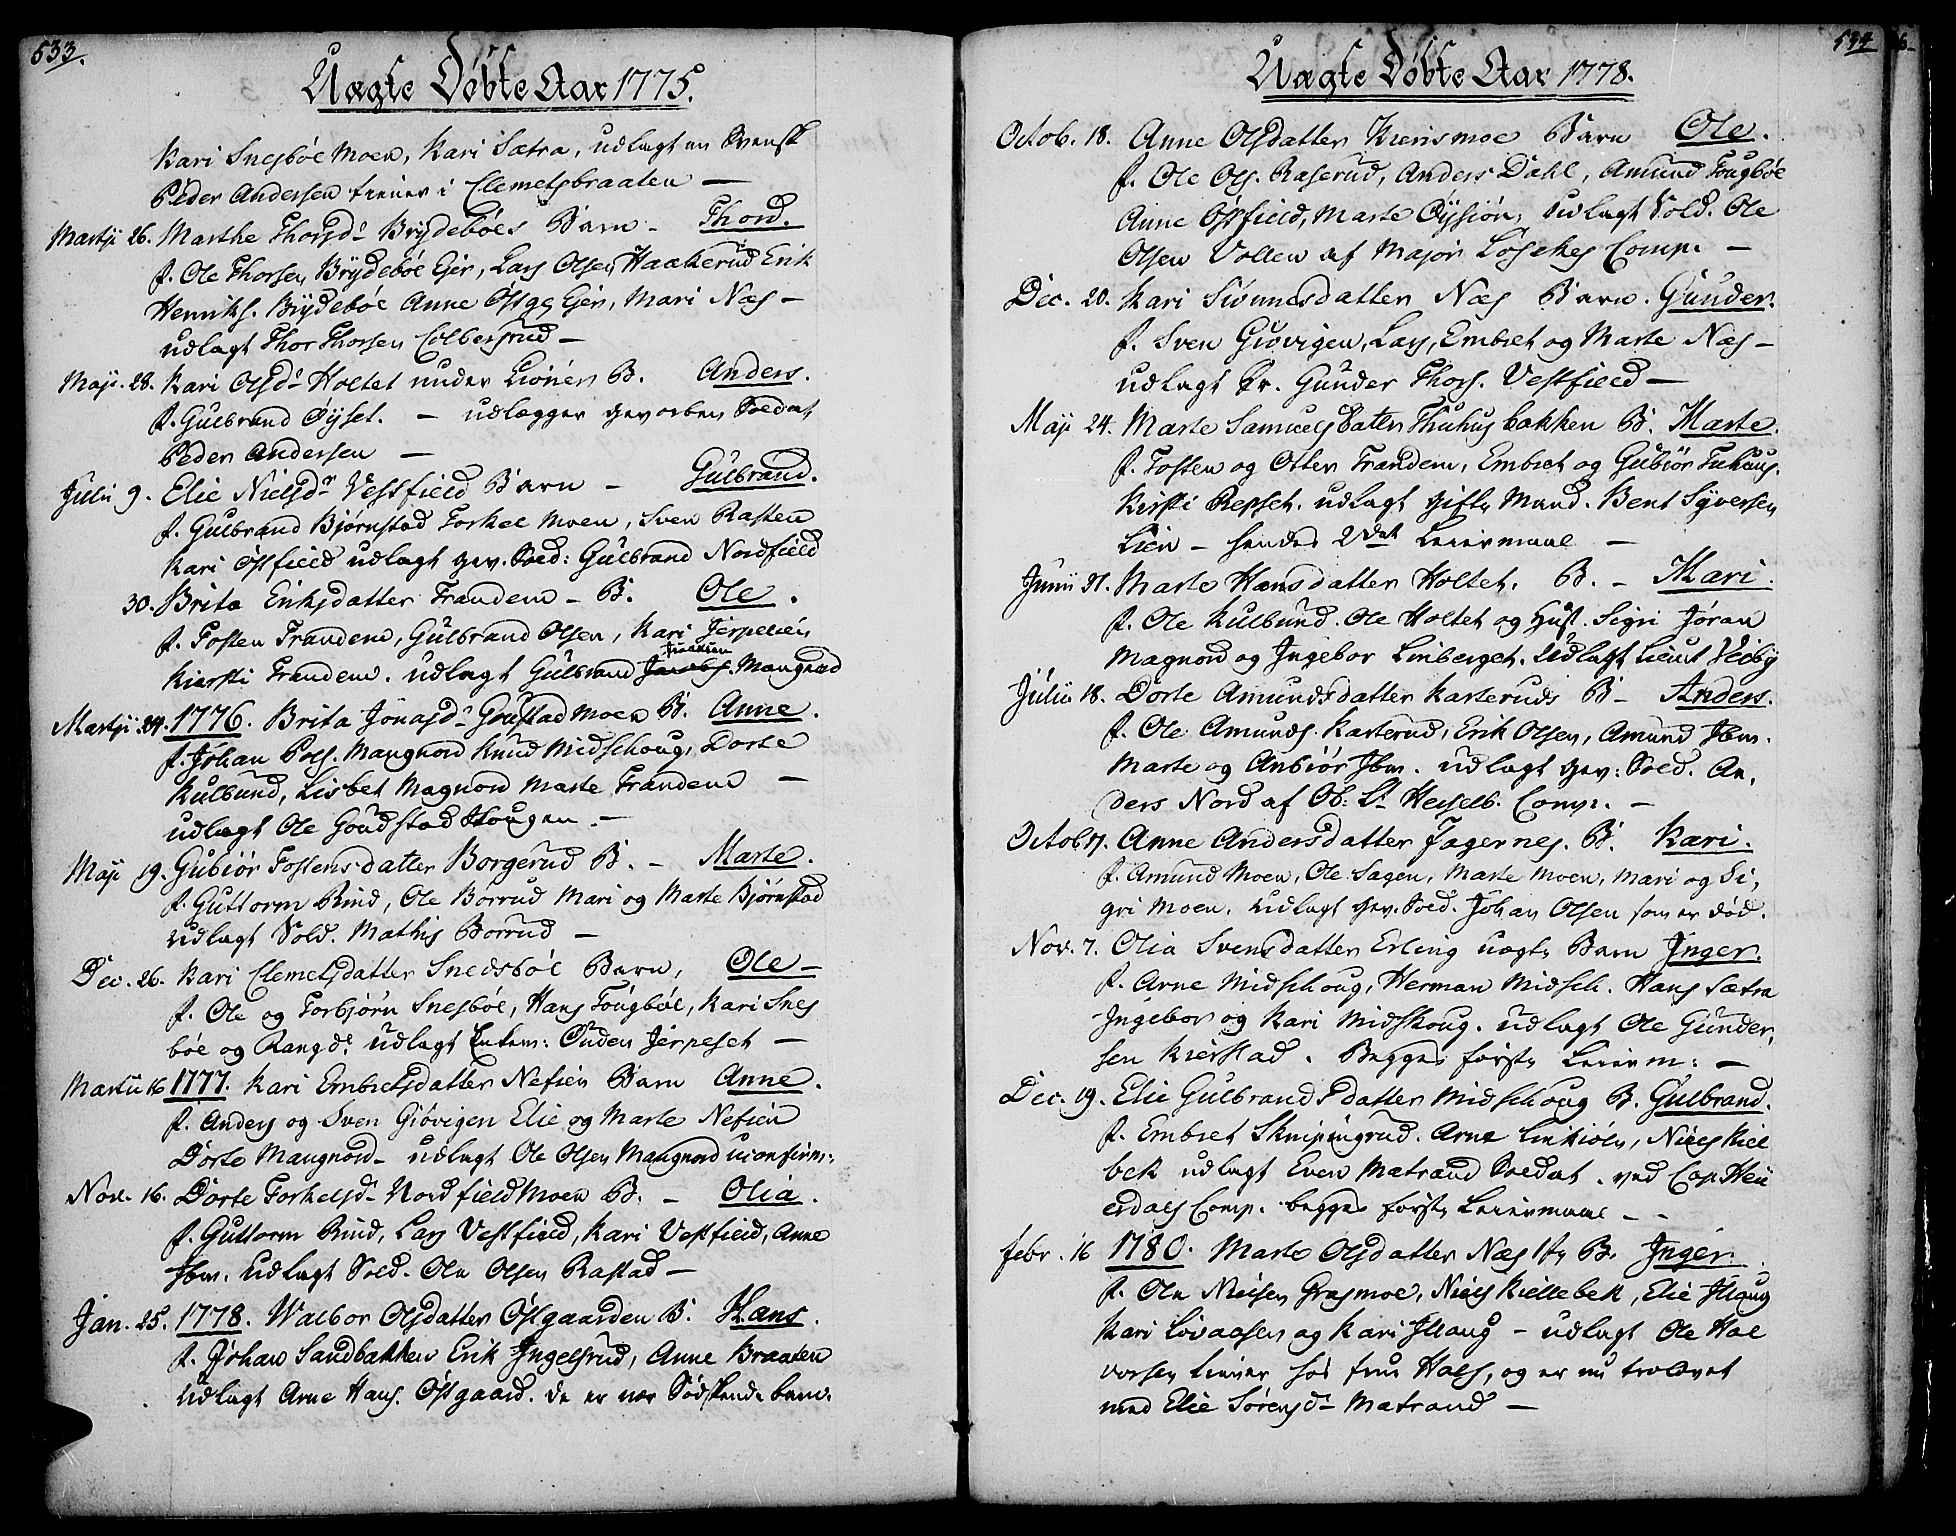 533.
Uægte Døbte Aar 1775.
Kari Snesbøe Moen, Kari Sætra, udlagt en Svensk
Peder Andersen tiener i Clemetsbraaten —
Martji 26. Marthe Thorsd: Brydebøes Barn - Thord.
f. Ole Thorsen Brydebøe Eier, Lars Olsen Haakerud Erik
Henriks. Brydebøe Anne Østge Eier, Mari Næs —
udlagt Thor Thorsen Colbersrud —
Maji. 28. Kari Olsd: Holtet under Liönes B. Anders.
f. Gulbrand Øyset. — udlægger gevorben Soldat
Peder Andersen —
Julii 9. Elie Nielsdr Vestfield Barn - Gulbrand.
f. Gulbrand Bjørnstad Torkel Moen, Sven Rasten
Kari Østfield udlagt gev. Sold: Gulbrand Nordfield
30. Brita Eriksdatter Trandem - B. Ole.
f. Tosten Trandem, Gulbrand Olsen, Kari Jerpesein
Kiersti Trandem. udlagt Gulbrand Mangnod
Martji 24. 1776. Brita Jonasd: Goustad Moen B. Anne.
f. Johan Pols. Mangnord Knud Midschoug, Dorte
Kulbund, Lisbet Magnord Marte Trandem —
udlagt Ole Goudstad Hougen. —
Maji 19. Gubiør Tostensdatter Borgerud B. - Marte.
f. Guttorm Rind, Ole Borrud Mari og Marte Bjørnstad
udlagt Sold. Mathis Borrud —
Dec. 26. Kari Clemetsdatter Snedsbøl Barn, Ole —
f. Ole og Torbjørn Snesbøe, Hans Tougbøl, Kari Snes
bøe og Rangd: udlagt Enkem: Ouden Jerpeset —
Martii 16 1777. Kari Embretsdatter Nefsien Barn Anne.
f. Anders og Sven Giøvigen Elie og Marte Nefsien
Dorte Maugnord - udlagt Ole Olsen Maugnord uconfirm:
Nov. 16. Dorte Torkelsd: Nordfield Moen B. - Olia.
f. Guttorm Rind, Lars Vestfield, Kari Vestfield, Anne
Ibm. Udlagt Sold. Ole Olsen Rastad —
Jan. 25. 1778. Walbor Olsdatter Østgaarden B. Hans.
f. Johan Sandbakken Erik Ingelsrud, Anne Braaten
udlagt Arne Hans. Østgaard. de er nær Sødskende børn.
534
Uægte Døbte Aar 1778.
Octob. 18. Anne Olsdatter Krensmoe Barn Ole.
f. Ole Ols. Raserud, Anders Dahl, Amund Tougbøe
Anne Østfield, Marte Øysiøn, Udlagt Sold. Ole
Olsen Vollen af Major Løsekes Comp. —
Dec. 20. Kari Siønnesdatter Næs Barn. Gunder.
f. Sven Giøvigen, Lars, Embret og Marte Næs —
udlagt Dr. Gunder Thors. Vestfield —
Maji 24. Marte Samuelsdatter Thuhus bakken B. Marte.
f. Tosten og Otter Trandem, Embret og Gubiør Tuhuus.
Kirsti Repset. udlagt gifte Mand. Bent Syversen
Lien - hendes 2det Leiermaal —
Junii 31. Marte Hansdatter Holtet. B. - Mari.
f. Ole Kulbund. Ole Holtet og Hust. Sigri Jøran
Magnord og Ingebor Linberget. Udlagt Lieut Veiby
Julii 18. Dorte Amundsdatter Karteruds B - Anders.
f. Ole Amunds. Karterud, Erik Olsen, Amund Ibm.
Marte og Anbiør Ibm. udlagt gev: Sold. An,
ders Nord af Ob: Lt Hesselb. Comp. —
Octob. 17. Anne Andersdatter Fagernes. B. Kari.
f. Amund Moen, Ole Sagen, Marte Moen, Mari og Si,
gri Moen. Udlagt gev. Sold. Johan Olsen som er død.
Nov. 7. Olia Svensdatter Erling uægte Barn Inger.
f. Arne Midschoug, Herman Midsch. Hans Sætra
Ingebor og Kari Midskoug. Udlagt Ole Gunder,
sen Kierstad. Begges første Leierm: —
Dec. 19. Elie Gulbrandsdatter Midschoug B. Gulbrand.
f. Embret Skripingrud. Arne Linkiøln, Niels Kiel
bek udlagt Even Matrand Soldat. ved Cap. Heü
erdals Comp. begges første Leiermaal —
Febr. 16 1780. Marte Olsdatter Næs 1te B. Inger.
f. Ole Nielsen Grasmoe, Niels Kiellebek, Elie Houg
Kari Lövaasen og Kari Houg - udlagt Ole Hal
vorsen tiener hos frue Hals, og er nu trolovet
med Elie Sørensd: Matrand —